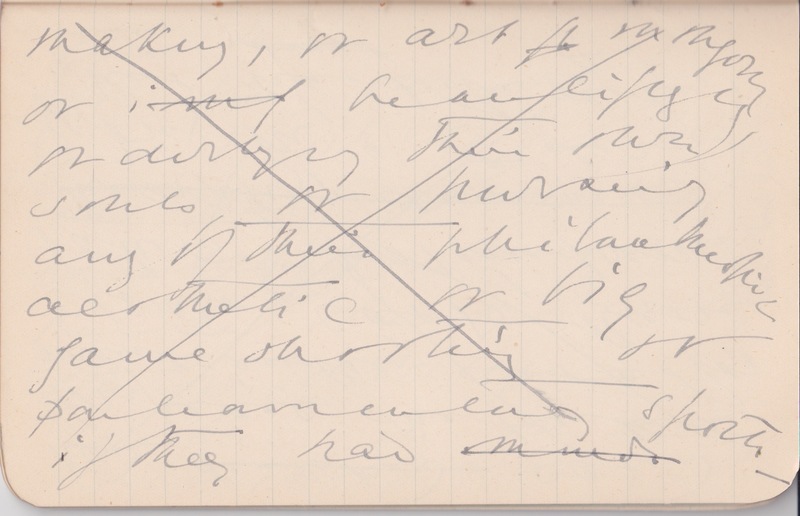 making, or art
or beautifying
or developing their own
souls or pursuing
any of their philanthropic
aesthetic or big
game shooting or
parliamentary sports
if they had